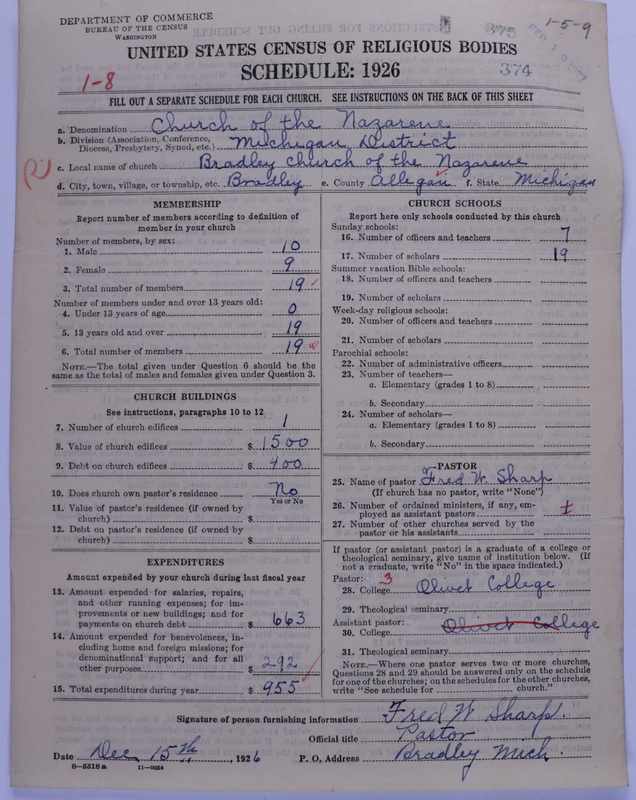 DEPARTMENT OF COMMERCE
BUREAU OF THE CENSUS
WASHINGTON
375
1-5-9
UNITED STATES CENSUS OF RELIGIOUS BODIES
1-8
SCHEDULE: 1926
374
FILL OUT A SEPARATE SCHEDULE FOR EACH CHURCH. SEE INSTRUCTIONS ON THE BACK OF THIS SHEET
a. Denomination Church of the Nazarene
b. Division (Association, Conference, Diocese, Presbytery, Synod, etc.) Michigan District
c. Local name of church Bradley church of the Nazarene
d. City, town, village, or township, etc. Bradley e. County Allegan f. State Michigan
MEMBERSHIP
Report number of members according to definition of
member in your church
Number of members, by sex:
1. Male 10
2. Female 9
3. Total number of members 19
Number of members under and over 13 years old:
4. Under 13 years of age 0
5. 13 years old and over 19
6. Total number of members 19
NOTE.—The total given under Question 6 should be
same as the total of males and females given under Question 3.
CHURCH BUILDINGS
See instructions, paragraphs 10 to 12
7. Number of church edifices 1
8. Value of church edifices $ 1500
9. Debt on church edifices $ 400
10. Does church own pastor's residence No
Yes or No
11. Value of pastor's residence (if owned by
church) $
12. Debt on pastor's residence (if owned by
church) $
EXPENDITURES
Amount expended by your church during last fiscal year
13. Amount expended for salaries, repairs,
and other running expenses; for im-
provements or new buildings; and for
payments on church debt $ 663
14. Amount expended for benevolences, in-
cluding home and foreign missions; for
denominational support; and for all
other purposes $ 292
15. Total expenditures during year $ 955
CHURCH SCHOOLS
Report here only schools conducted by this church
Sunday schools:
16. Number of officers and teachers 7
17. Number of scholars 19
Summer vacation Bible schools:
18. Number of officers and teachers
19. Number of scholars
Week-day religious schools:
20. Number of officers and teachers
21. Number of scholars
Parochial schools:
22. Number of administrative officers
23. Number of teachers—
a. Elementary (grades 1 to 8)
b. Secondary
24. Number of scholars—
a. Elementary (grades 1 to 8)
b. Secondary
PASTOR
25. Name of pastor Fred W. Sharp
(If church has no pastor, write "None")
26. Number of ordained ministers, if any, em-
ployed as assistant pastors
27. Number of other churches served by the
pastor or his assistants
If pastor (or assistant pastor) is a graduate of a college or
theological seminary, give name of institution below. (If
not a graduate, write "No" in the space indicated.)
Pastor: 3
28. College Olivet College
29. Theological seminary
Assistant pastor:
30. College Olivet College
31. Theological seminary
NOTE.—Where one pastor serves two or more churches,
Questions 28 and 29 should be answered only on the schedule
for one of the churches; on the schedules for the other churches,
write "See schedule for church."
Signature of person furnishing information Fred W Sharp.
Official title Pastor
Date Dec. 15th, 1926 P. O. Address Bradley Mich.
8—5518a 11—9054